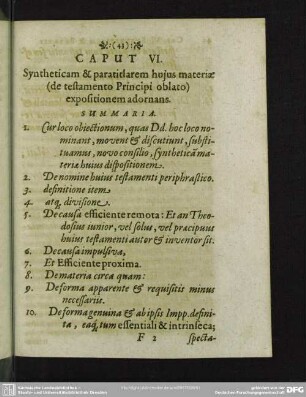 (43)
CAPUT VI.
Syntheticam & paratitlarem hujus materiæ
(de testamento Principi oblato)
expositionem adornans.
SUMMARIA.
1. Cur loco obiectionum, quas Dd. hoc loco no-
minant, movent & discutiunt, substi-
tuamus, novo consilio, syntheticã ma-
teriæ huius dispositionem.
2. De nomine huius testamenti periphrastico.
3. definitione item
4. atq; divisione.
5. De causa efficiente remota: Et an Theo-
dosius iunior, vel solus, vel præcipuus
huius testamenti autor & inventor sit.
6. De causa impulsiva,
7. Et Efficiente proxima.
8. De materia circa quam:
9. De forma apparente & requisitis minus
necessariis.
10. De forma genuina & ab ipsis Impp. defini-
ta, eaq; tum essentiali & intrinseca;
F 2 specta-